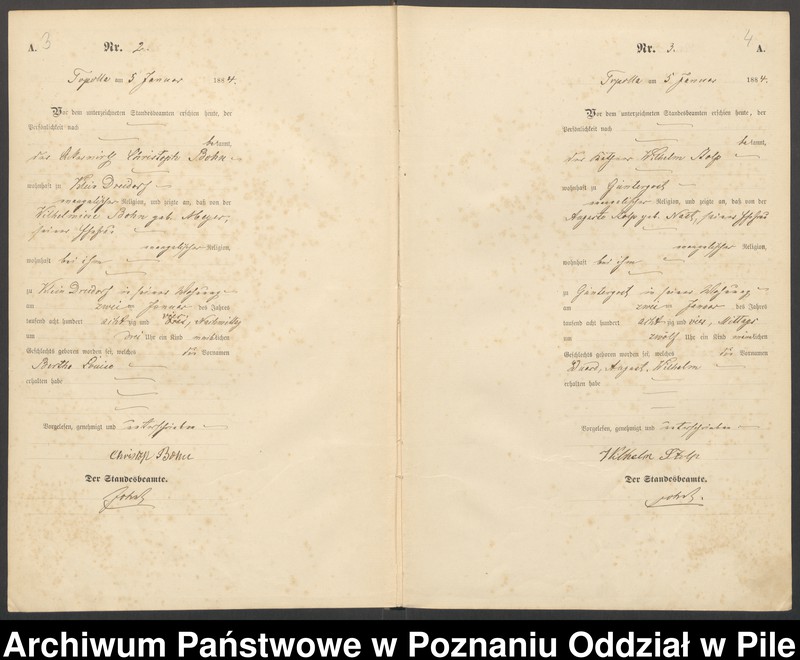 3
A.
Nr. 2.
Topolla am 5 Januar 1884.
Vor dem unterzeichneten Standesbeamten erschien heute, der
Persönlichkeit nach
bekannt,
der Christoph Bohn
wohnhaft zu Klein Dreidorf
evangelischer Religion, und zeigte an, daß von der
Wilhelmine Bohn geb. Meyer,
seiner Ehefrau
evangelischer Religion,
wohnhaft bei ihm
zu Klein Dreidorf in seiner Wohnung
am zweiten Januar des Jahres
tausend acht hundert achtzig und vier, Nachmittag
um drei Uhr ein Kind weiblichen
Geschlechts geboren worden sei, welches die Vornamen
Bertha Louise
erhalten habe
Vorgelesen, genehmigt und unterschrieben
Christoph Bohn
Der Standesbeamte.
4
Nr. 3. A.
Topolla am 5 Januar 1884.
Vor dem unterzeichneten Standesbeamten erschien heute, der
Persönlichkeit nach
bekannt,
der Wilhelm Stolp
wohnhaft zu Güntergost
evangelischer Religion, und zeigte an, daß von der
Auguste Stolp geb. seiner Ehefrau
evangelischer Religion,
wohnhaft bei ihm
zu Güntergost in seiner Wohnung
am zweiten Januar des Jahres
tausend acht hundert achtzig und vier, Mittags
um zwölf Uhr ein Kind männlichen
Geschlechts geboren worden sei, welches die Vornamen
August, Wilhelm
erhalten habe
Vorgelesen, genehmigt und unterschrieben
Wilhelm Stolp
Der Standesbeamte.
Archiwum Państwowe w Poznaniu Oddział w Pile